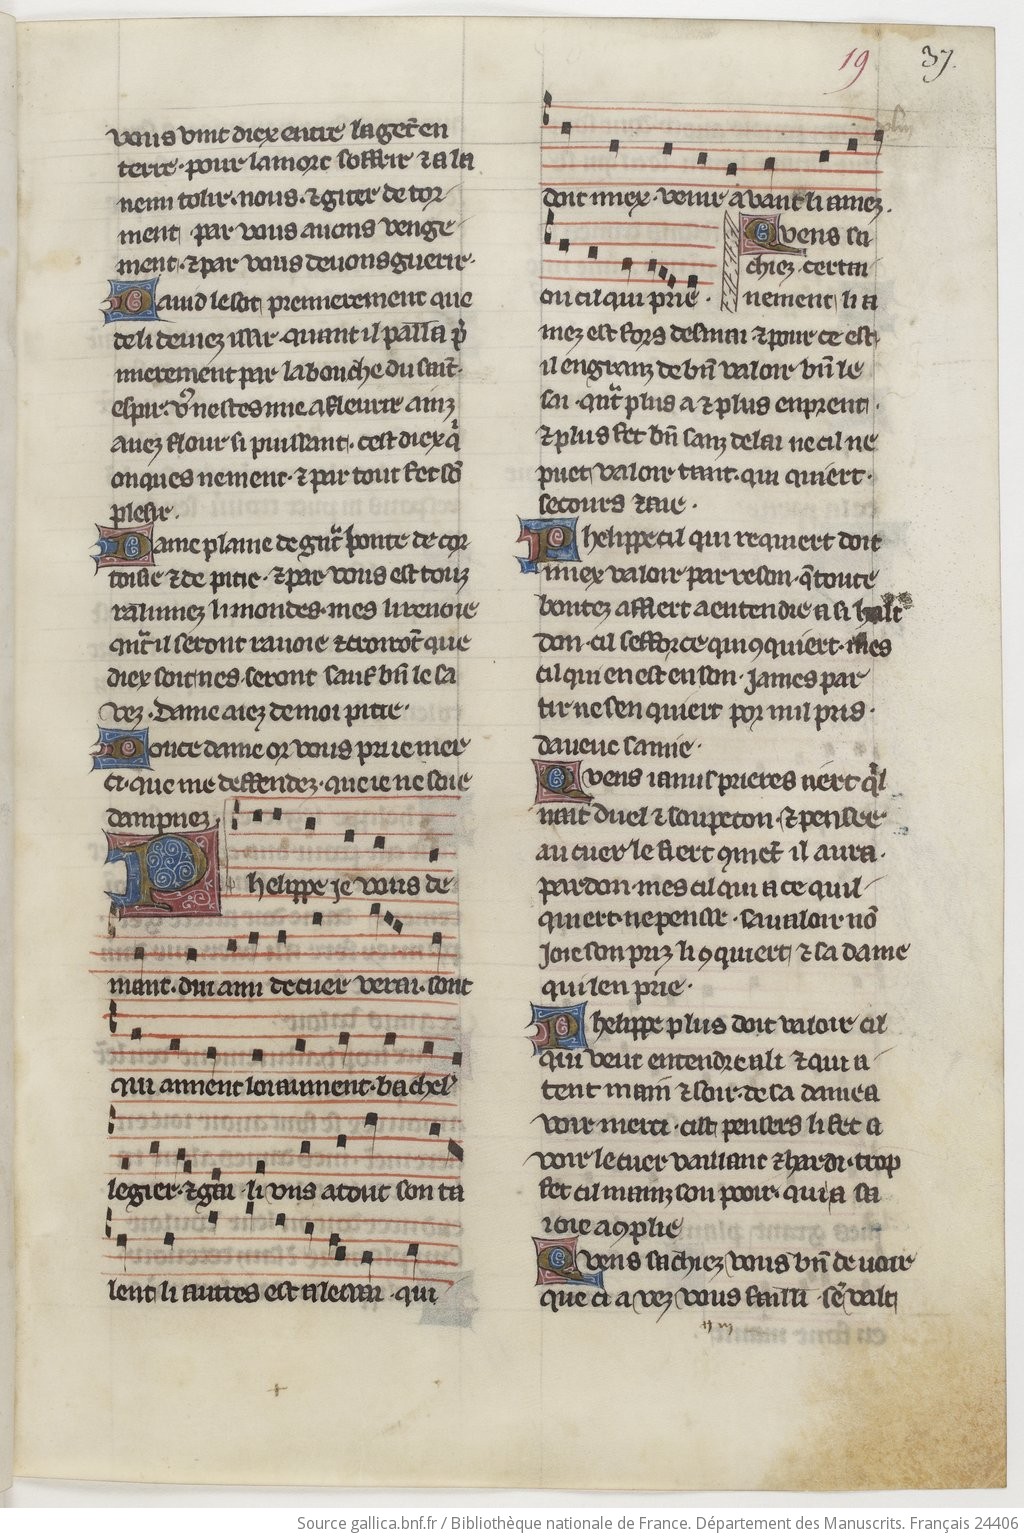 19 37.
vous vint diex entre la get̃ en
terre · pour la mort soffrir ⁊ a la
nemi tolir · nous · ⁊ giter de tor
ment par vous auons venge
ment · ⁊ par vous deuons guerir ·
Dauid le sot premierement que
de li deuiez issir · quant il passa p̃
mierement par la bouche du saīt
espir · v̉ nestes mie afleurir ainz
auez flour si puissant · cest diex q̓
onques nement · ⁊ par tout fet sō
plesir ·
Dame plaine de grāt bonte de cor
toisie ⁊ de pitie · ⁊ par vous est touz
ralumez li mondes · mes li renoie
quāt il seront rauoie ⁊ croirōt que
diex soit nes · seront sauf bn̄ le sa
vez · Dame aiez de moi pitie ·
Douce dame or vous pri ie mer
ci · que me deffendez · que ie ne soie
dampnez ·
Phelippe je vous de
mant · dui ami de cuer verai · sont
qui aiment loiaument · bachel̓
legier · ⁊ gai li vns a tout son ta
lent li autres est a lessai · qui
doit miex · venir auant li amez ·
ou cil qui prie ·
Quens sa
chiez · certai
nement li a
mez est fors desmai ⁊ pour ce est
il en grant de bn̄ valoir bn̄ le
sai · quāt plus a ⁊ plus enprent ·
⁊ plus fet bn̄ sanz delai ne cil ne
puet valoir tant · qui quiert ·
secours ⁊ aie ·
Phelippe cil qui requiert doit
miex valoir par reson · q̄ toute
bontez affiert a entendre a si halt
don · cil sefforce qui ꝯquiert · mes
cil qui en est en son · james par
tir ne sen quiert por mil pris ·
daueuc samie ·
Quens iamis prieres niert q̓l
nait duel ⁊ soupecon · ⁊ pensee
au cuer le fiert ꝯmēt il aura ·
pardon · mes cil qui a ce quil
quiert · ne pensse · sa valoir nō
joie son priz li ꝯquiert ⁊ sa dame
qui len prie ·
Phelippe plus doit valoir cil
qui veut entendre a li ⁊ qui a
tent main ⁊ soir · de sa dame a
voir merci · cist pensers li fet a
voir le cuer vaillant ⁊ hardi · trop
fet cil mainz son pooir · qui a sa
ioie a ꝯplie
Quens sachiez vous bn̄ de uoir
que ci a vez vous failli · se valt
Source gallica.bnf.fr / Bibliothèque nationale de France. Département des Manuscrits. Français 24406